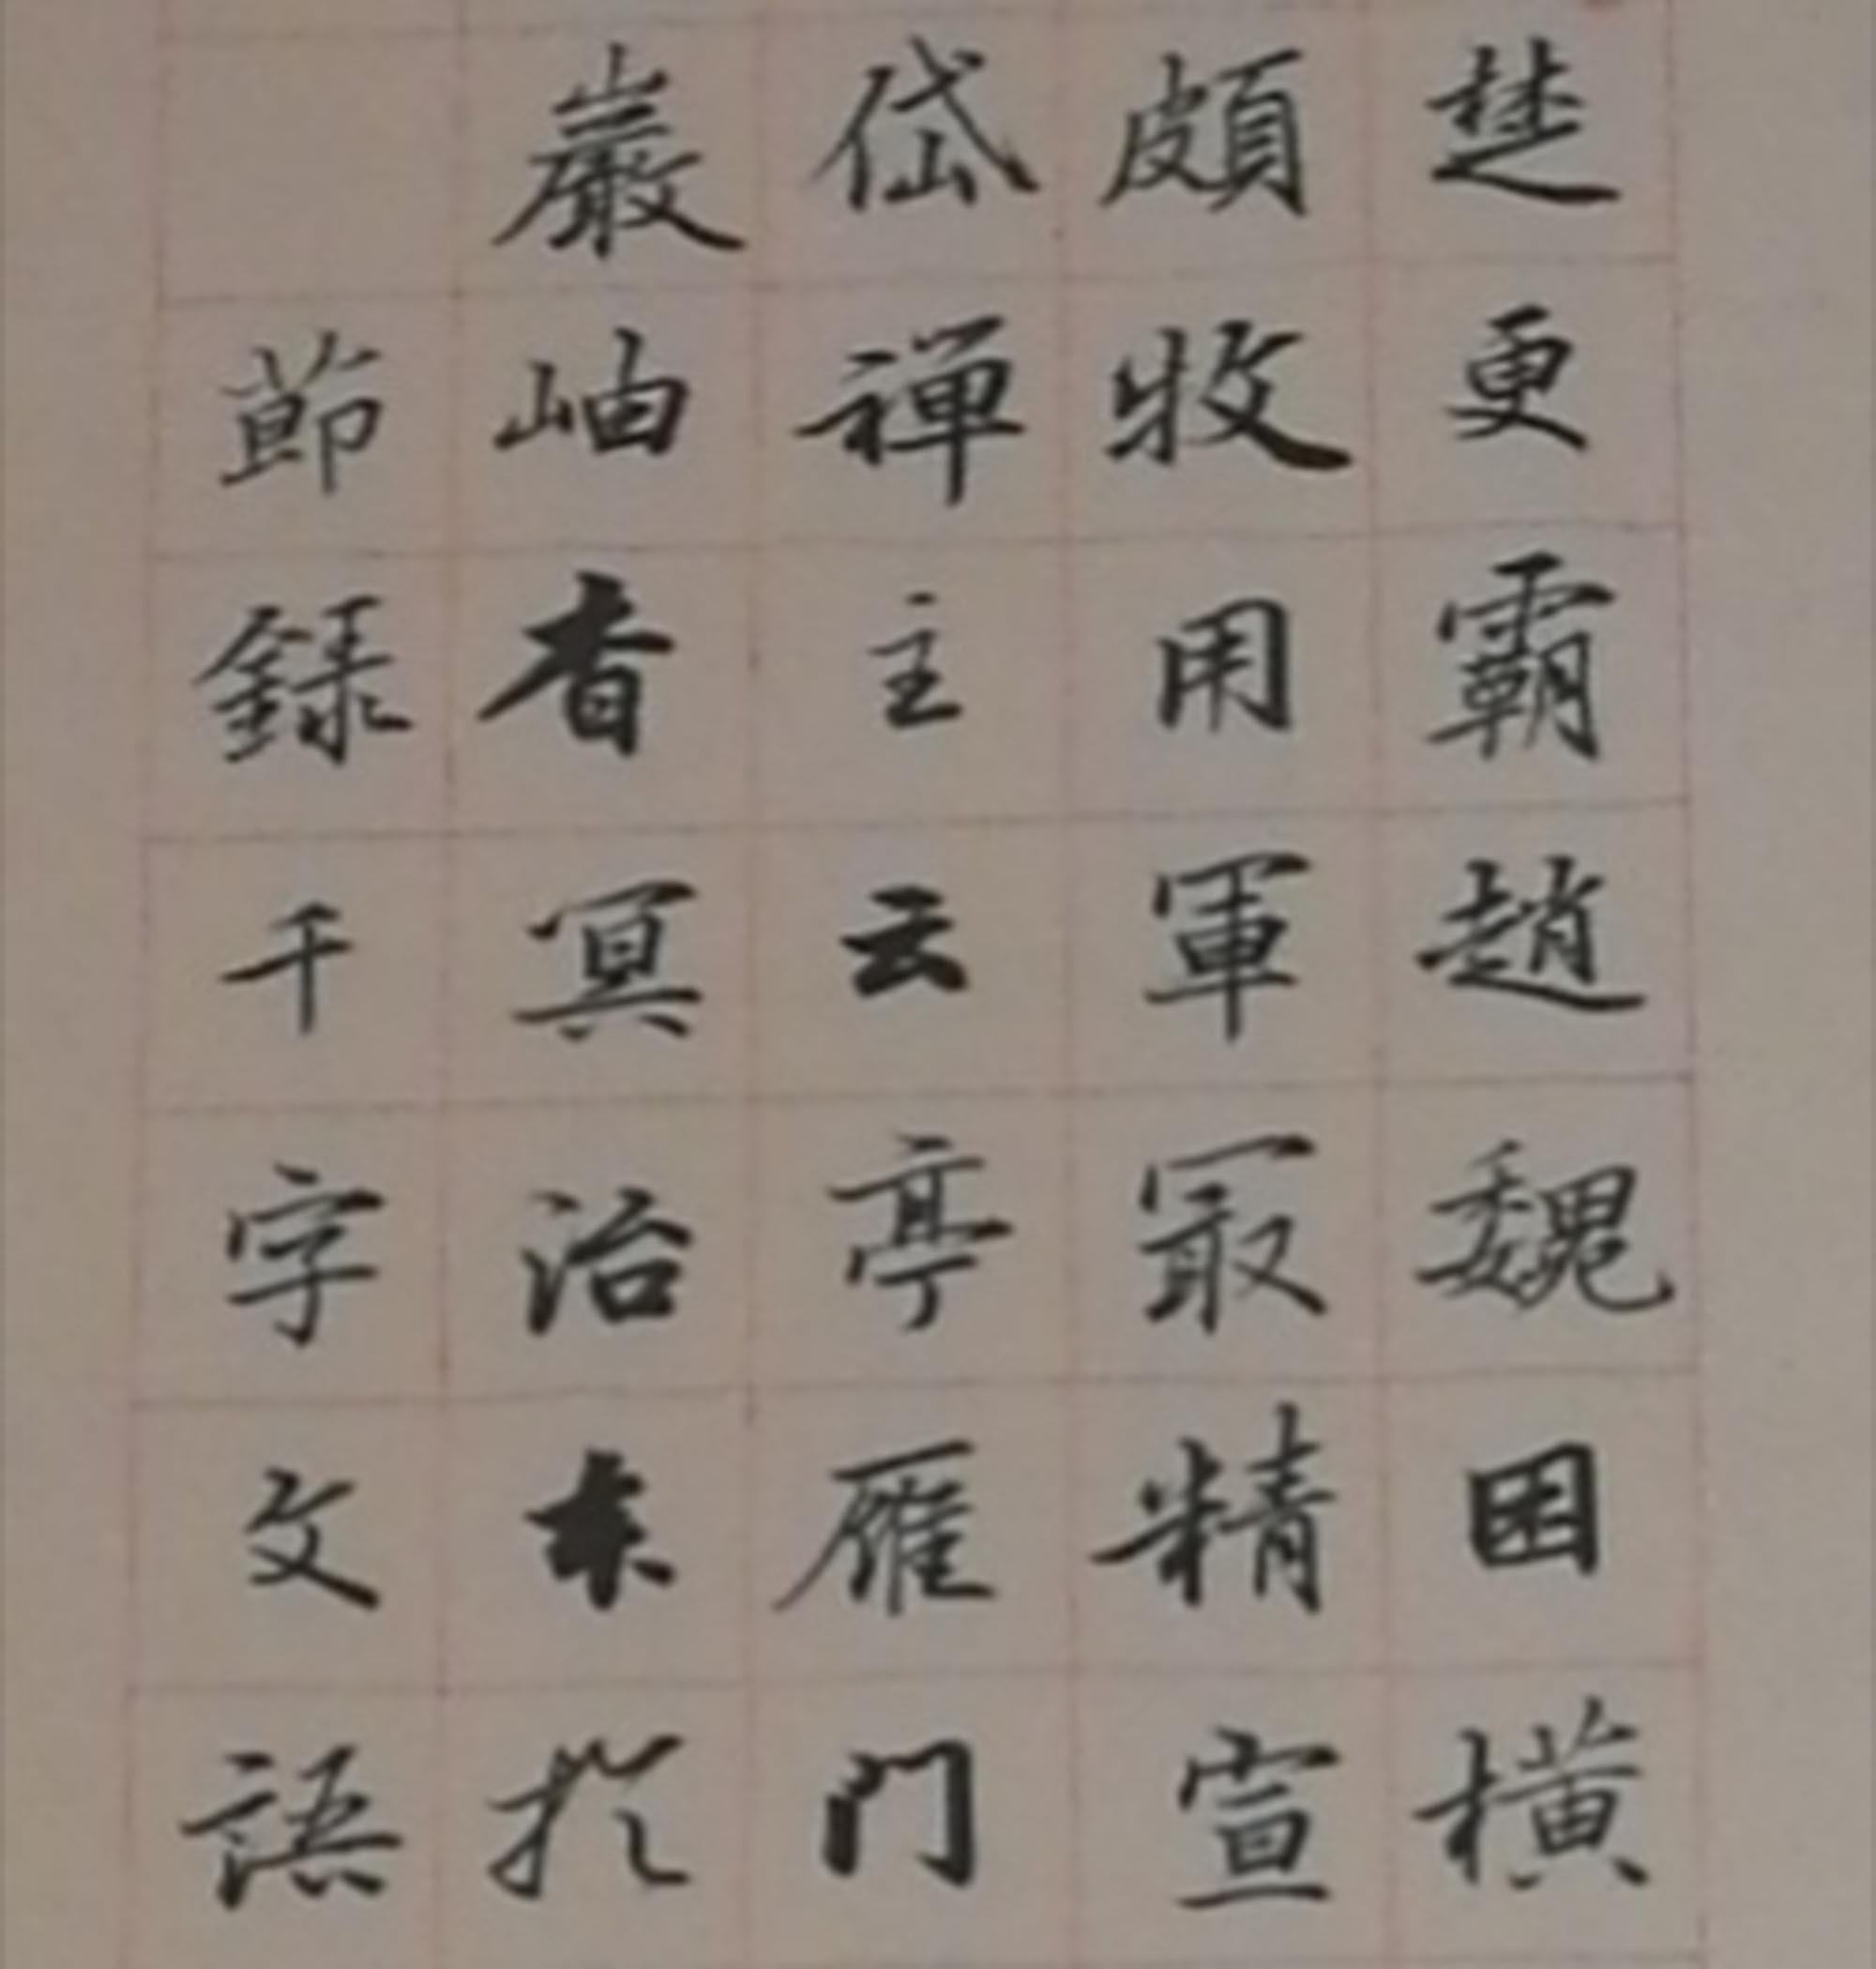 楚更霸趙魏困橫
頗牧用軍最精宣
岱禪主云亭雁门
巖岫杳冥治本於
節錄千字文語